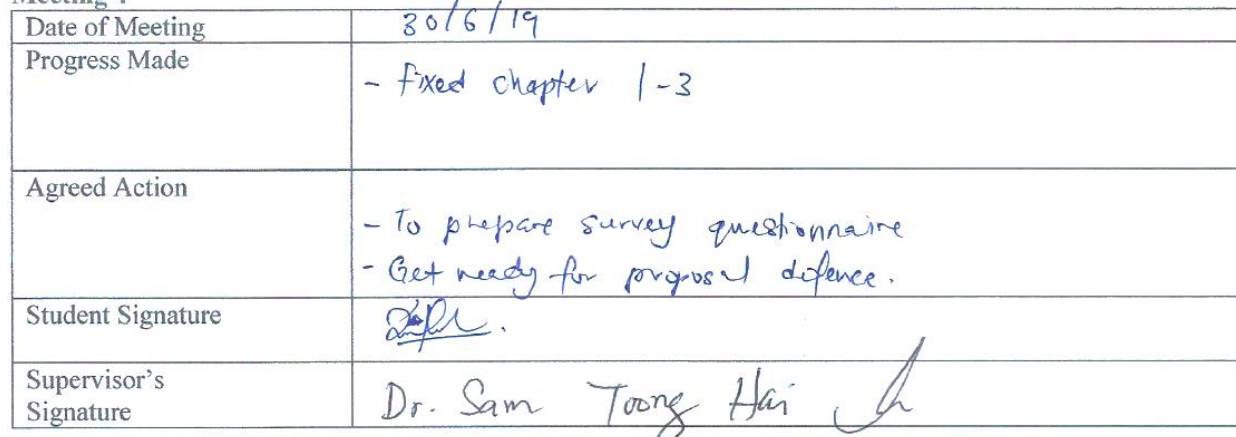 Date of Meeting 30/6/19
Progress Made
- fixed chapter 1-3
Agreed Action
- To prepare survey questionnaire
- Get ready for proposal defence.
Student Signature
Supervisor's
Signature Dr. Sam Toong Hai